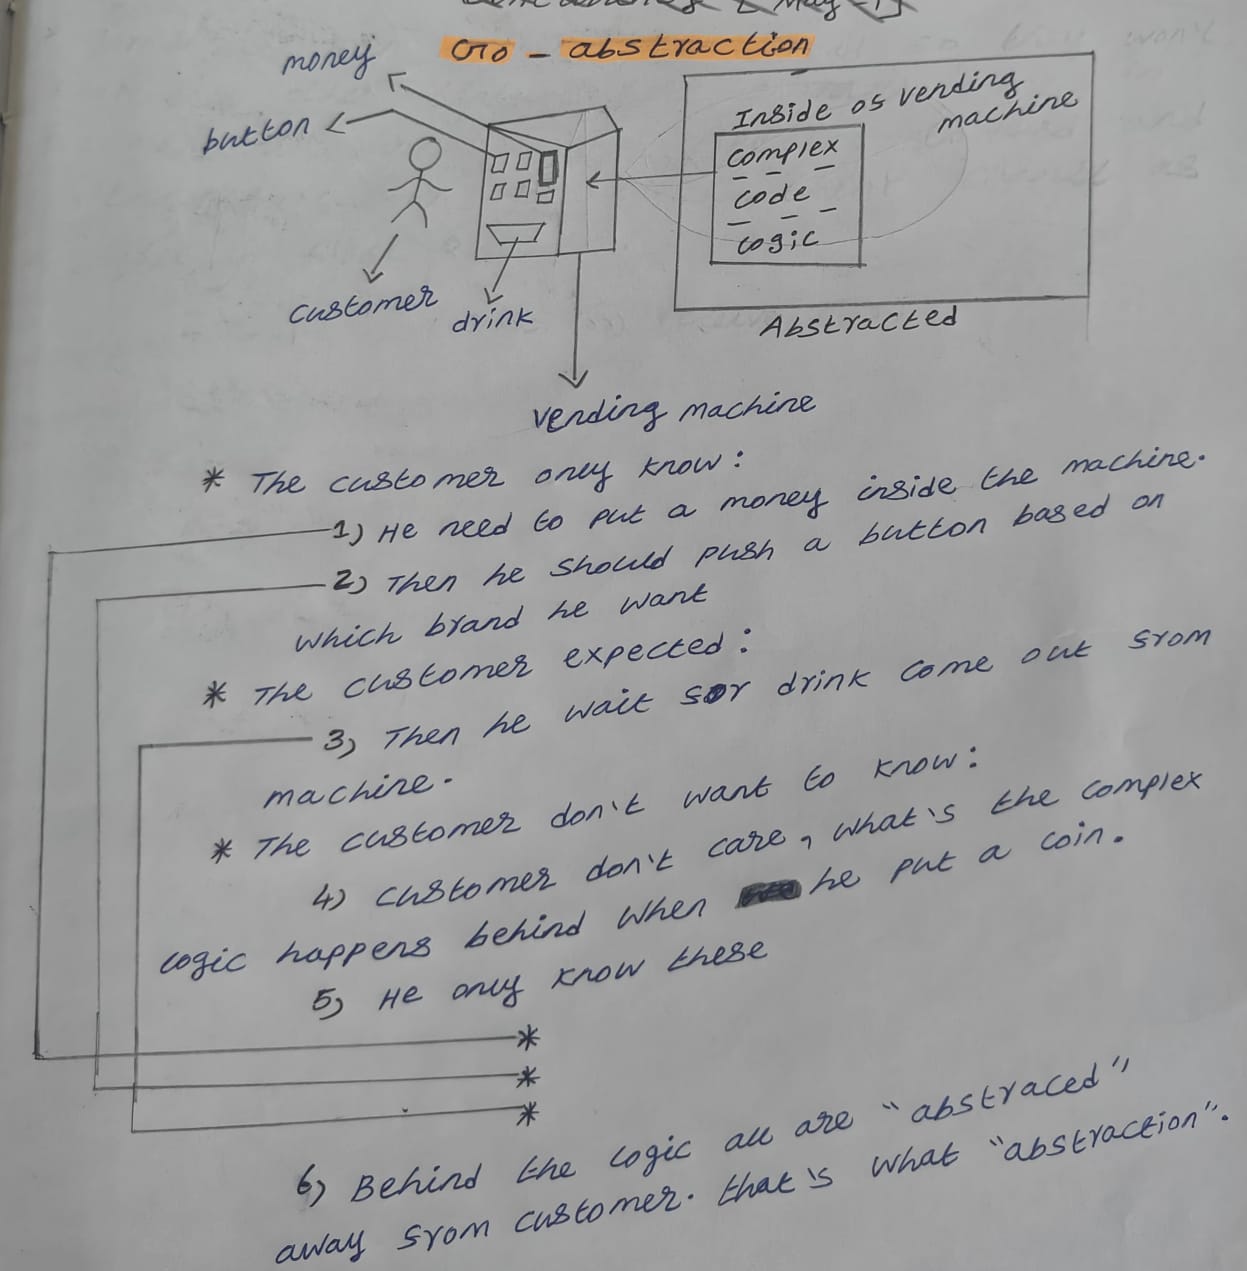 money
button
abstraction
Inside of vending
machine
complex
code
logic
customer
drink
Abstracted
vending machine
* The customer only know:
1) He need to put a money inside the machine.
2) Then he should push a button based on
which brand he want
* The customer expected:
3) Then he wait for drink come out from
machine.
* The customer don't want to know:
4) customer don't care, what's the complex
logic happens behind when he put a coin.
5) He only know these
*
*
*
6) Behind the logic all are "abstraced"
away from customer. that's what "abstraction".